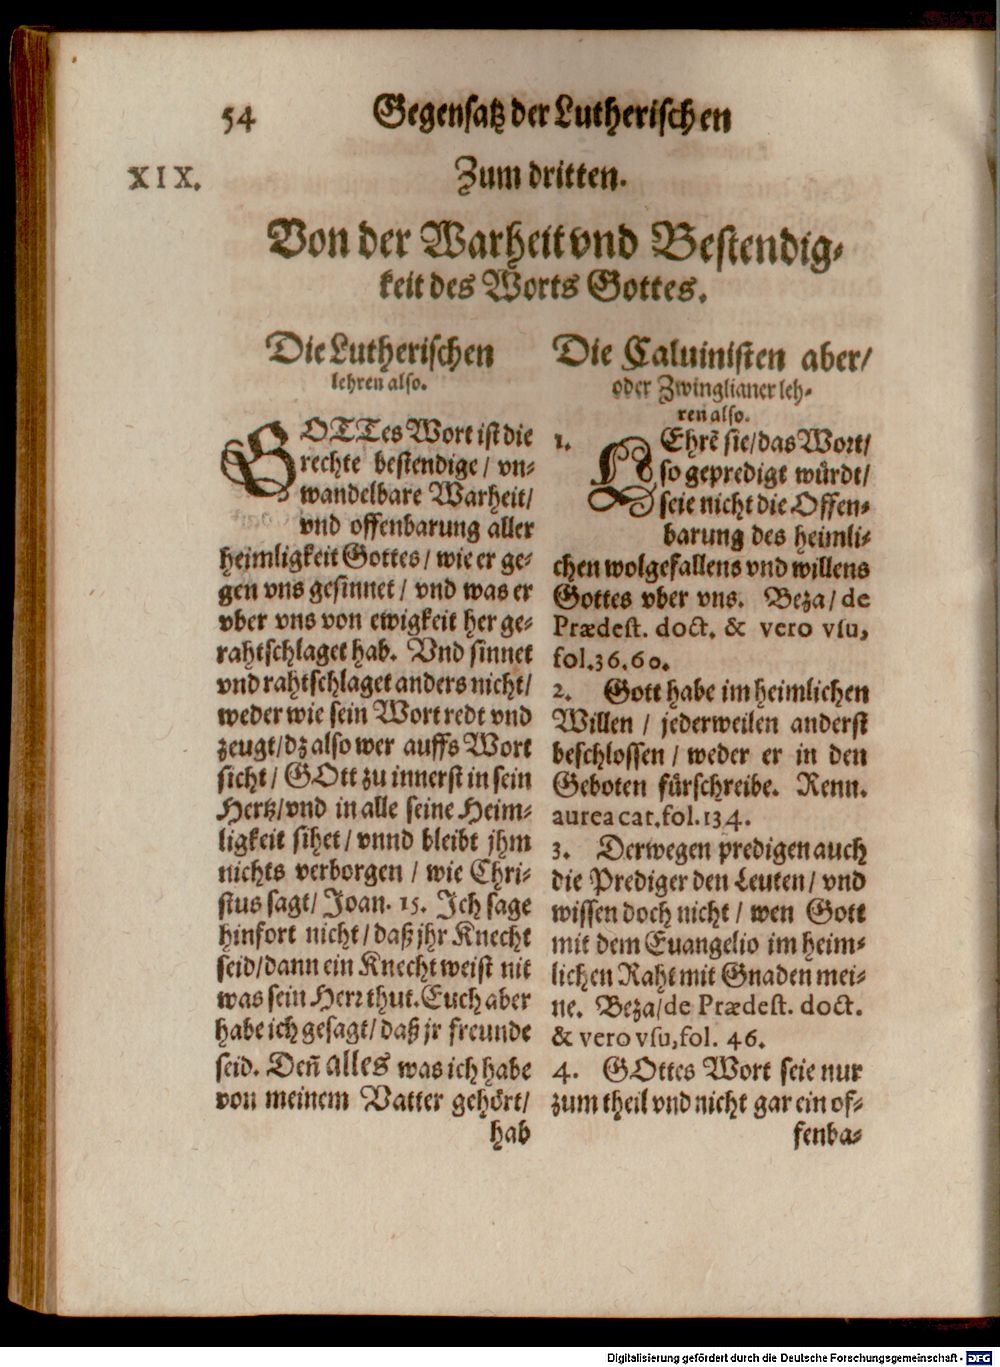 54 Gegensatz der Lutherischen
XIX. Zum dritten.
Von der Warheit vnd Bestendig-
keit des Worts Gottes.
Die Lutherischen
lehren also.
GOTTes Wort ist die
rechte bestendige / vn-
wandelbare Warheit /
vnd offenbarung aller
heimligkeit Gottes / wie er ge-
gen vns gesinnet / vnd was er
vber vns von ewigkeit her ge-
rahtschlaget hab. Vnd sinnet
vnd rahtschlaget anders nicht /
weder wie sein Wort redt vnd
zeugt / dz also wer auffs Wort
sicht / GOtt zu innerst in sein
Hertz / vnd in alle seine Heim-
ligkeit sihet / vnnd bleibt jhm
nichts verborgen / wie Chri-
stus sagt / Joan. 15. Ich sage
hinfort nicht / daß jhr Knecht
seid / dann ein Knecht weist nit
was sein Herr thut. Euch aber
habe ich gesagt / daß jr freunde
seid. Deñ alles was ich habe
von meinem Vatter gehört /
hab
Die Caluinisten aber /
oder Zwinglianer leh-
ren also.
1. LEhrẽ sie / das Wort /
so gepredigt würdt /
seie nicht die Offen-
barung des heimli-
chen wolgefallens vnd willens
Gottes vber vns. Beza / de
Prædest. doct. & vero vsu,
fol. 36. 60.
2. Gott habe im heimlichen
Willen / jederweilen anderst
beschlossen / weder er in den
Geboten fürschreibe. Renn.
aurea cat. fol. 134.
3. Derwegen predigen auch
die Prediger den Leuten / vnd
wissen doch nicht / wen Gott
mit dem Euangelio im heim-
lichen Raht mit Gnaden mei-
ne. Beza / de Prædest. doct.
& vero vsu, fol. 46.
4. GOttes Wort seie nur
zum theil vnd nicht gar ein of-
fenba-
Digitalisierung gefördert durch die Deutsche Forschungsgemeinschaft - DFG